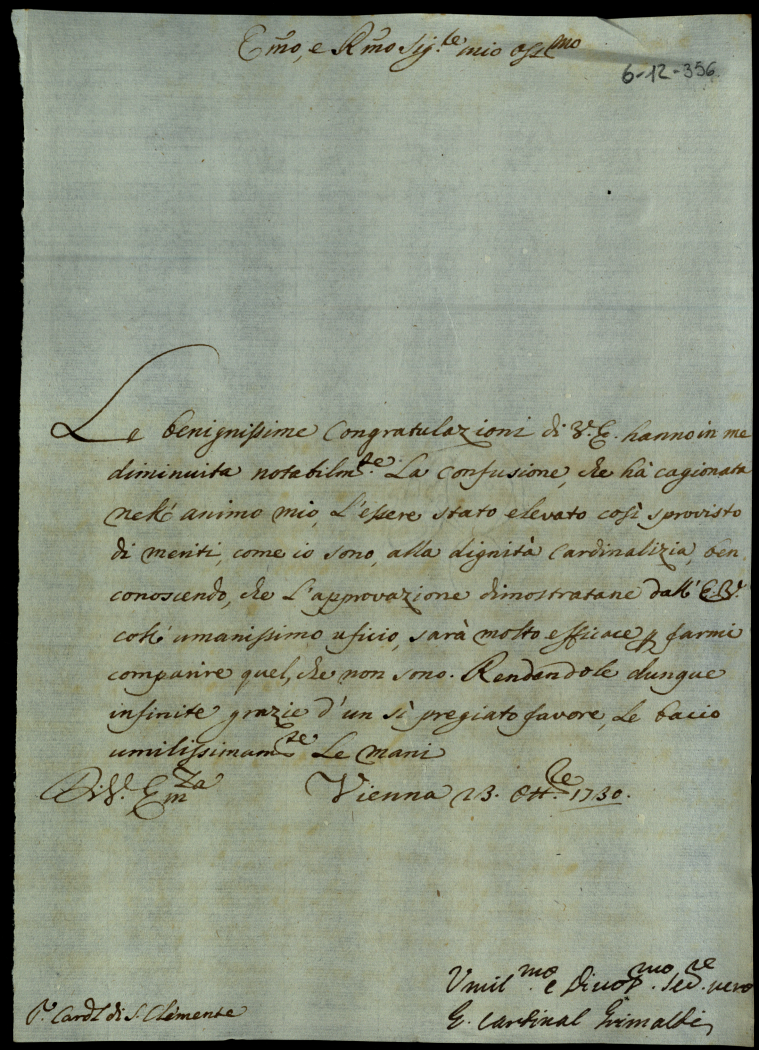 Emo, e Rmo Sig.re mio ossmo
6-12-356
Le benignissime Congratulazioni di V.E. hanno in me
diminuita notabilm.te La confusione, che hà cagionata
nell'animo mio, L'essere stato elevato così sprovisto
di meriti, come io sono, alla dignità Cardinalizia, ben
conoscendo, che L'approvazione dimostratane dall'E.V.
coll'umanissimo uficio, sarà molto efficace p farmi
comparire quel, che non sono. Rendendole dunque
infinite grazie d'un sì pregiato favore, Le bacio
umilissimam.te Le mani
Di V. Em.za Vienna 23. Ott.re 1730.
Umil.mo e Divo.mo Se.re vero
S.r Card.l di S. Clemente
G. Cardinal Grimaldi